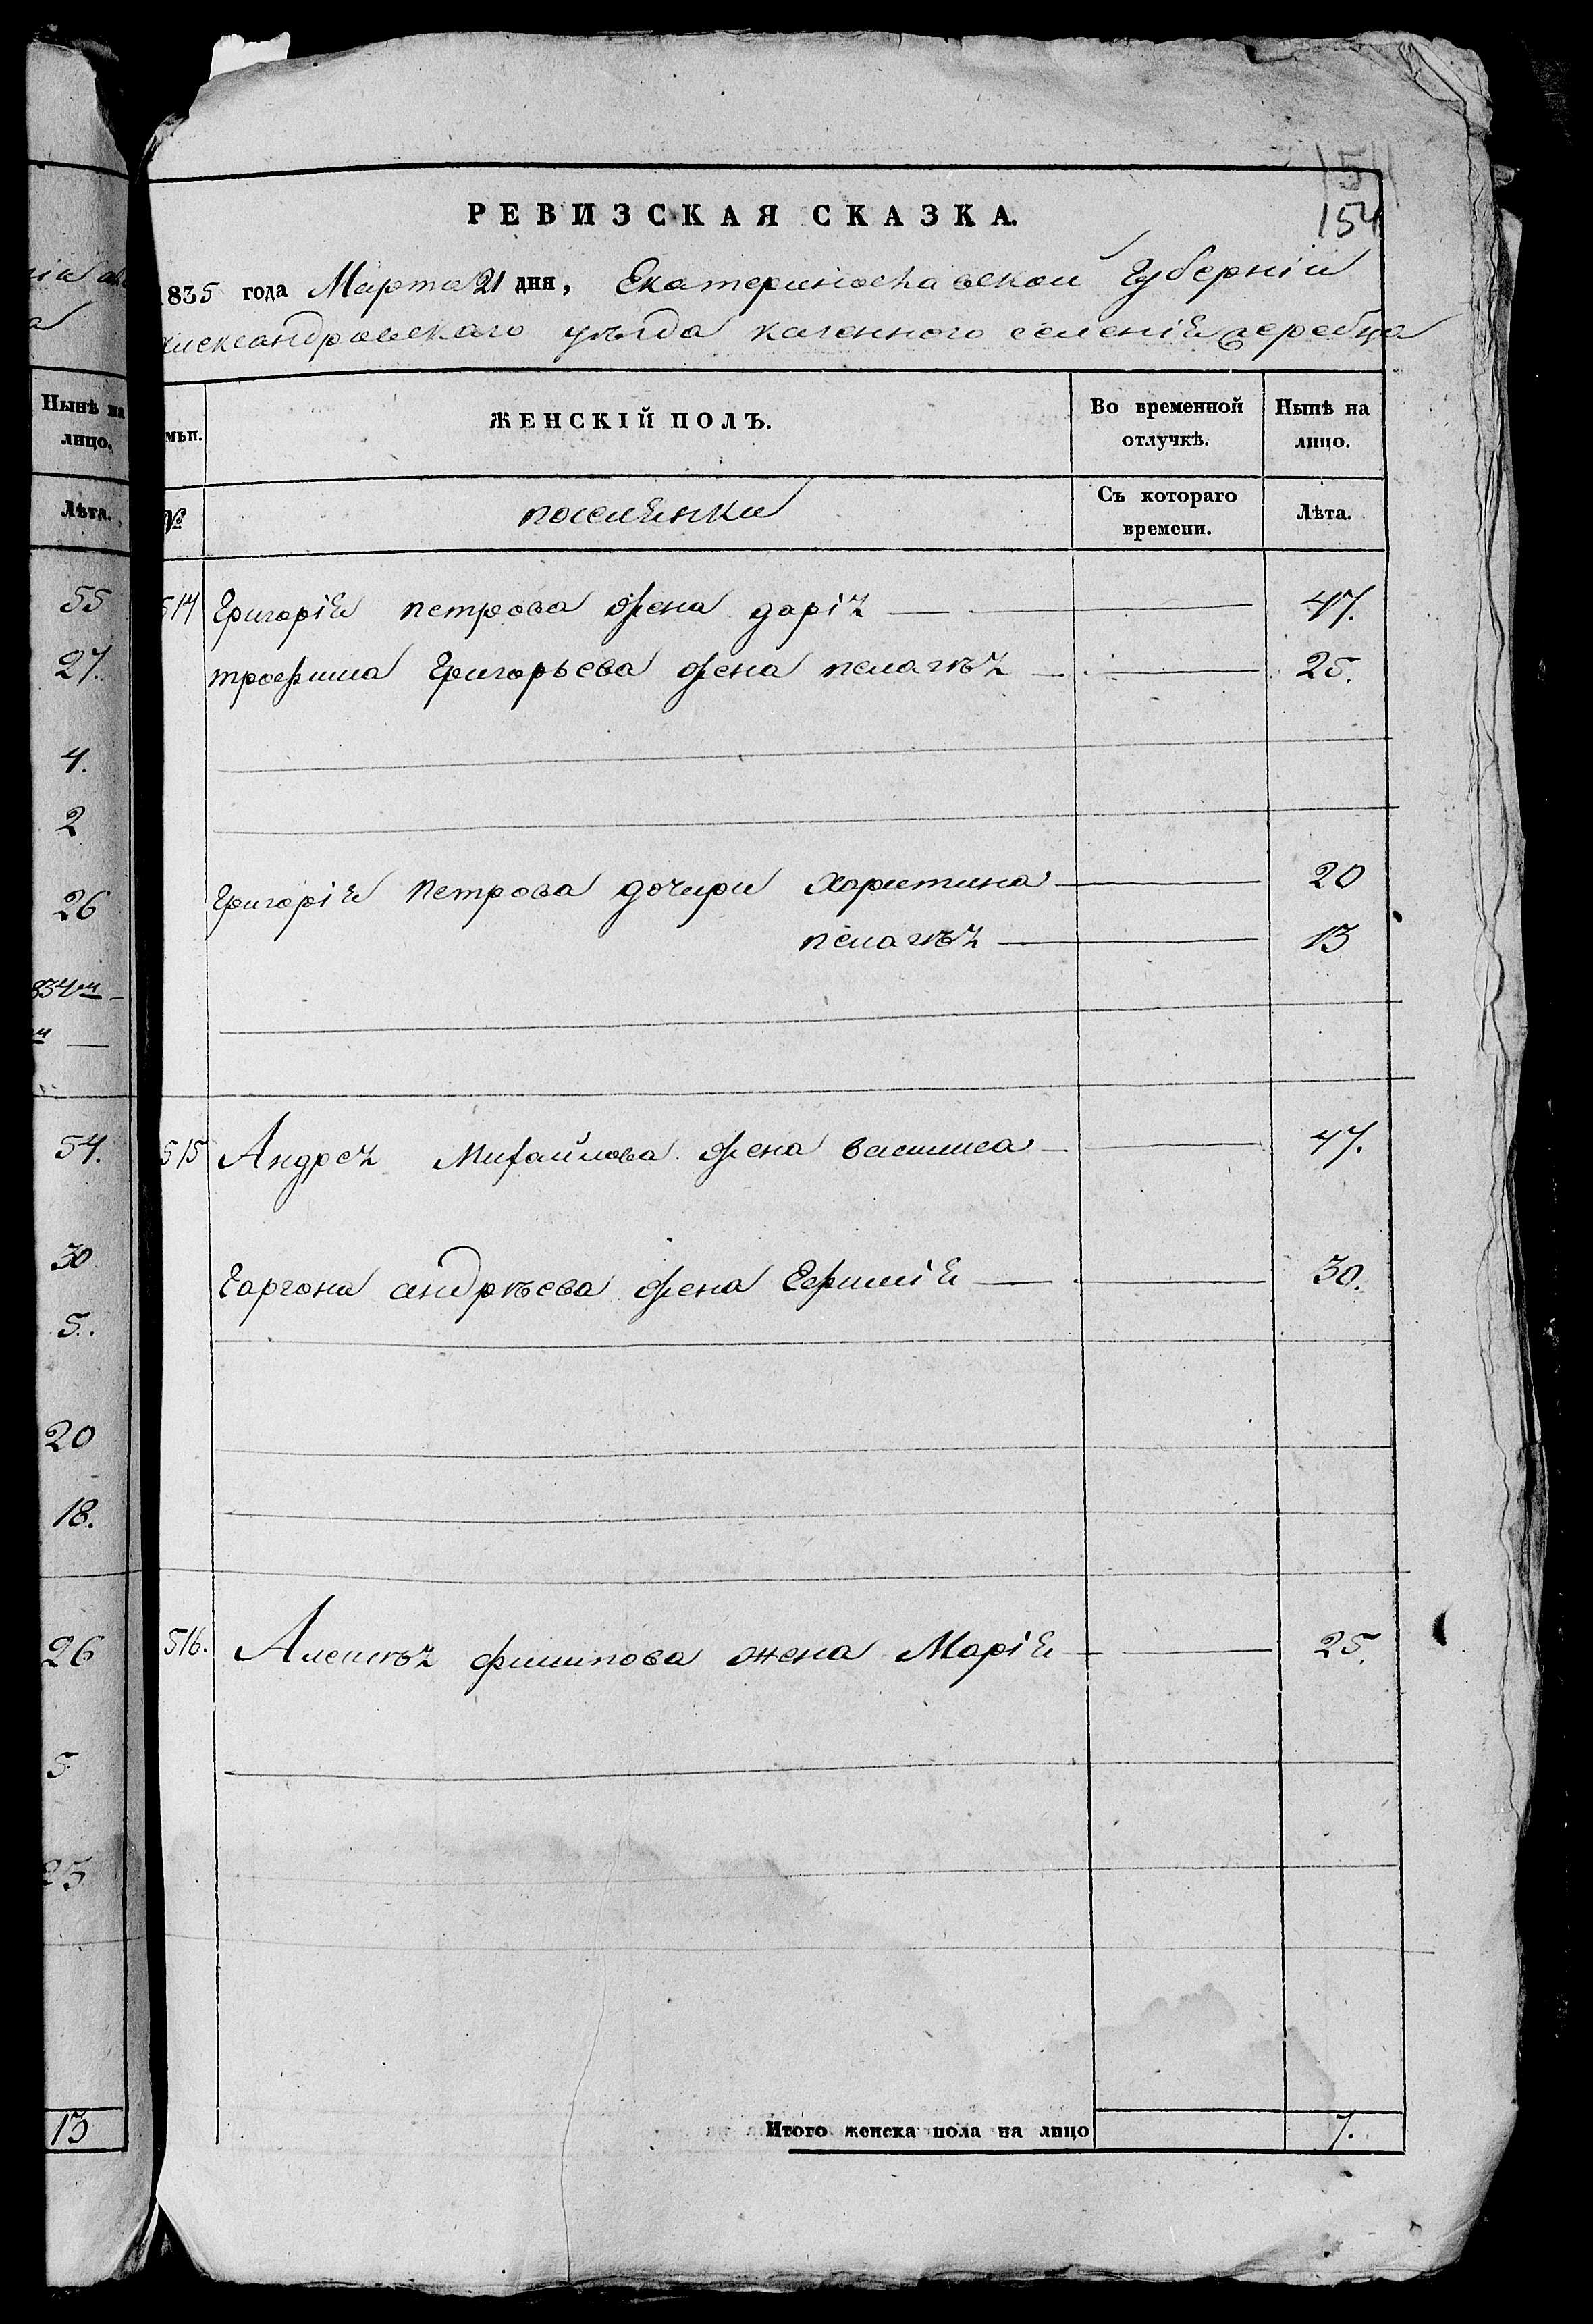 154
РЕВИЗСКАЯ СКАЗКА.
154
1835 года Марта 21 дня, Екатеринославской Губерніи
Александровскаго уѣзда казенного селенія жеребца
мьи. ЖЕНСКІЙ ПОЛЪ. Во временной отлучкѣ. Нынѣ на лицо.
№ поселянки Съ котораго времени. Лѣта.
514 Григорія петрова жена даріа 47.
трофима Григорьева жена пелагѣя 25.
Григорія петрова дочери харитина 20
пелагѣя 13
515 Андрея Михайлова жена василиса 47.
андрѣева жена Ефимія 30.
516. Алексѣя филипова жена Марія 25.
Итого женска пола на лицо 7.
Нынѣ на
лицо.
Лѣта.
55
27.
4.
2
26
834м
54.
30
5.
20
18.
26
5
23
13